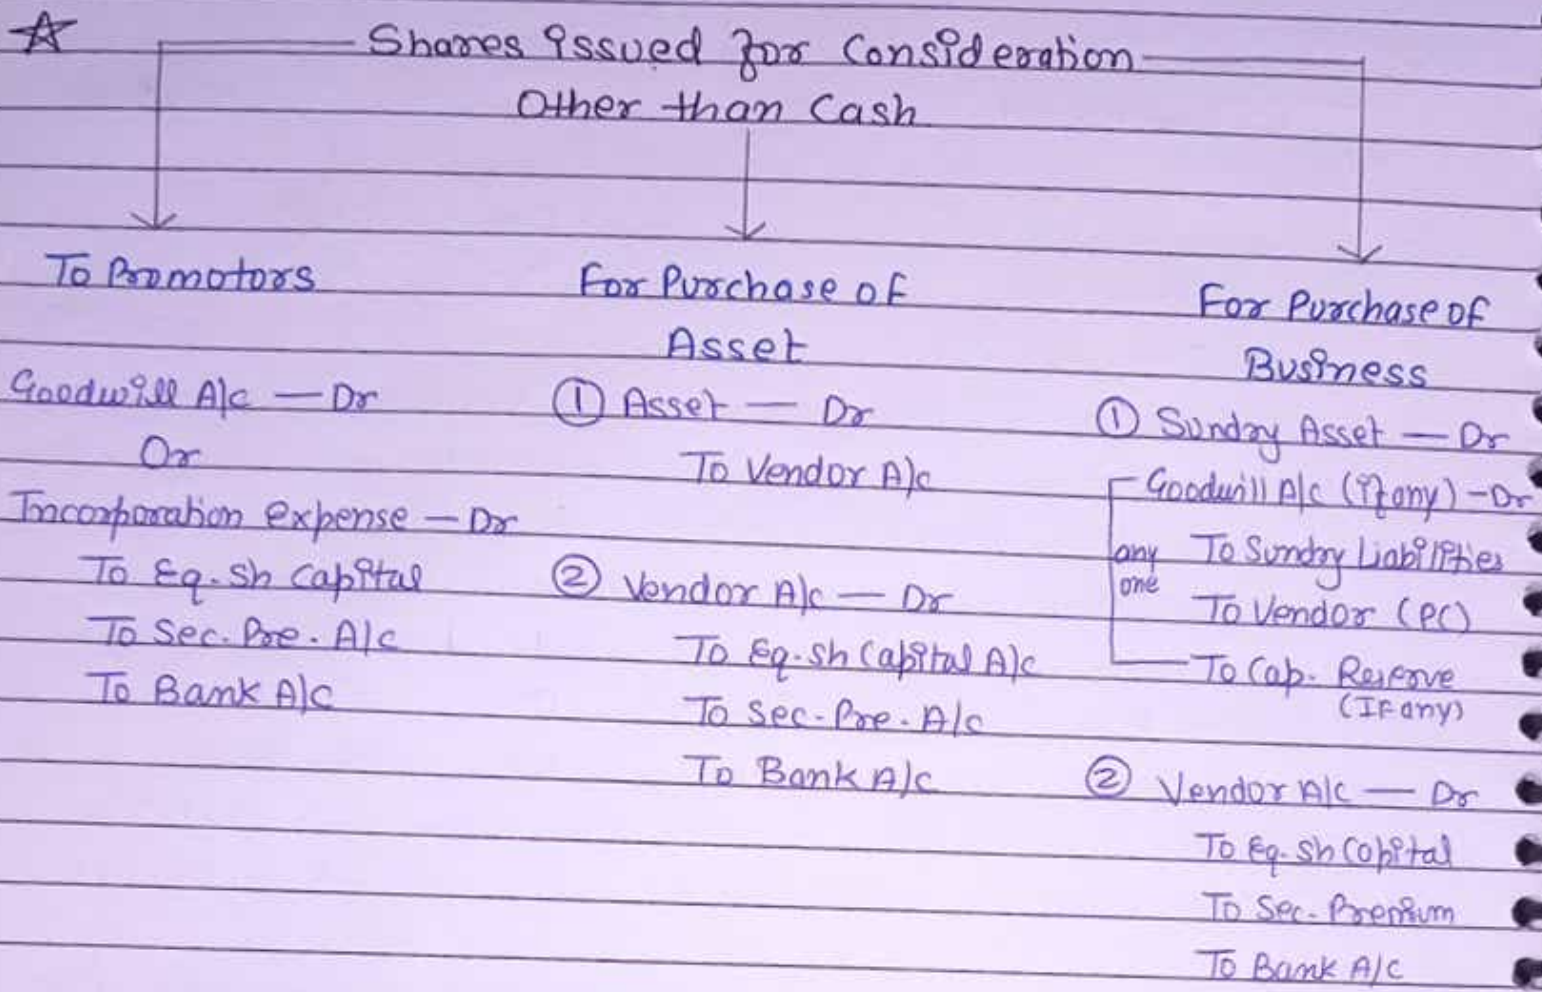 Shares issued for Consideration
Other than Cash
To Promotors
Goodwill A/c — Dr
Or
Incorporation expense — Dr
To Eq. Sh Capital
To Sec. Pre. A/c
To Bank A/c
For Purchase of
Asset
① Asset — Dr
To Vendor A/c
② Vendor A/c — Dr
To Eq. Sh Capital A/c
To Sec. Pre. A/c
To Bank A/c
For Purchase of
Business
① Sundry Asset — Dr
Goodwill A/c (if any) — Dr
any
one
To Sundry Liabilities
To Vendor (PC)
To Cap. Reserve
(If any)
② Vendor A/c — Dr
To Eq. Sh Capital
To Sec. Premium
To Bank A/c